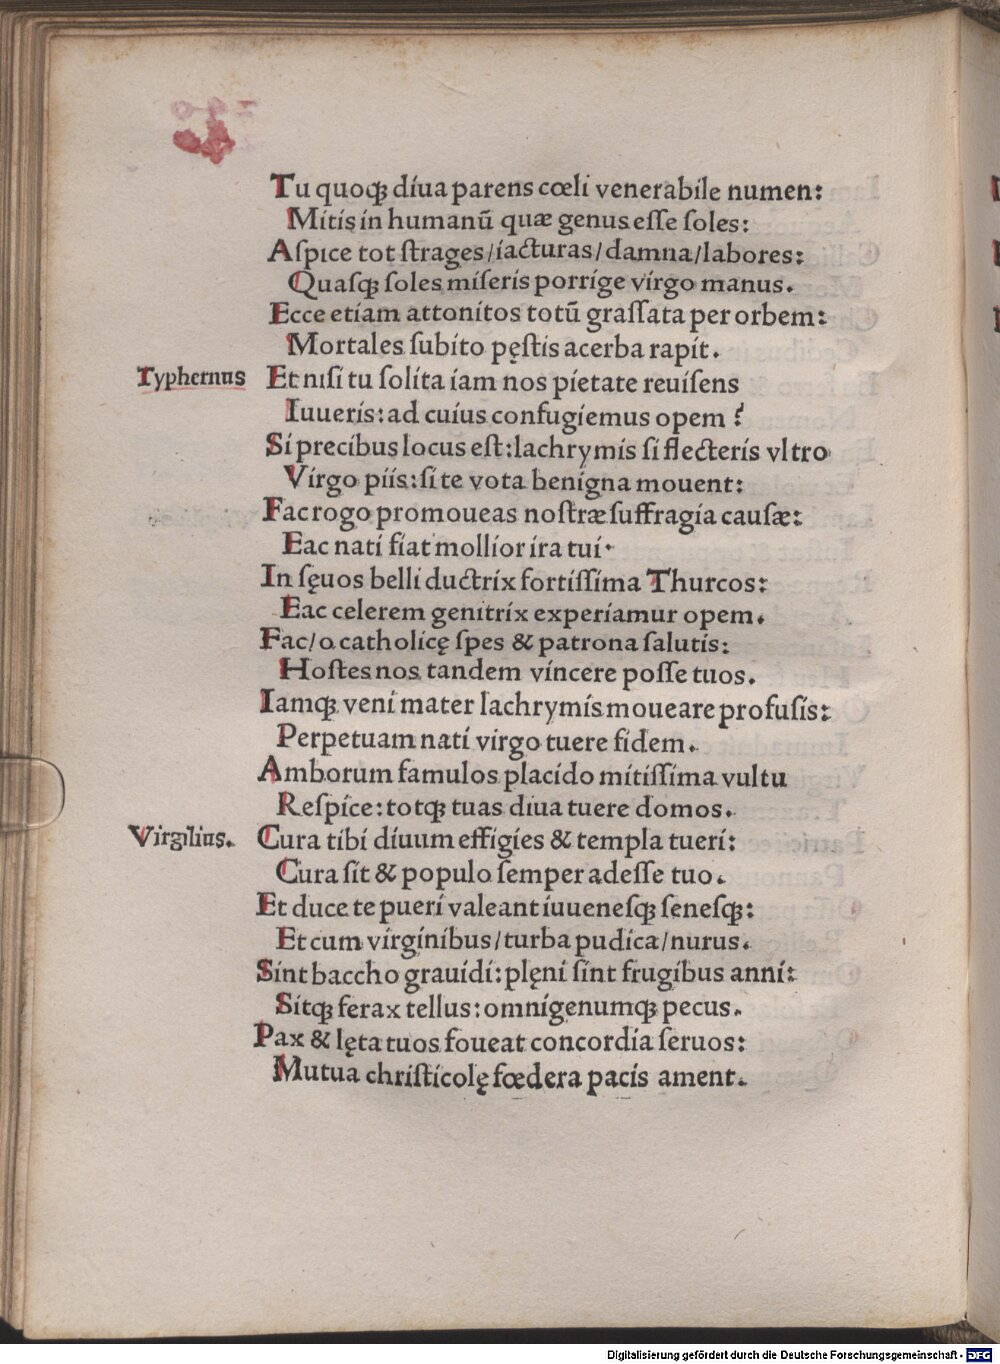 Tu quoqꝫ diua parens cœli venerabile numen:
Mitis in humanū quæ genus esse soles:
Aspice tot strages/iacturas/damna/labores:
Quasqꝫ soles miseris porrige virgo manus.
Ecce etiam attonitos totū grassata per orbem:
Mortales subito pęstis acerba rapit.
Typhernus
Et nisi tu solita iam nos pietate reuisens
Iuueris: ad cuius confugiemus opem?
Si precibus locus est: lachrymis si flecteris vltro
Virgo piis: si te vota benigna mouent:
Fac rogo promoueas nostræ suffragia causæ:
Eac nati fiat mollior ira tui.
In sęuos belli ductrix fortissima Thurcos:
Eac celerem genitrix experiamur opem.
Fac/o catholicę spes & patrona salutis:
Hostes nos tandem vincere posse tuos.
Iamqꝫ veni mater lachrymis moueare profusis:
Perpetuam nati virgo tuere fidem.
Amborum famulos placido mitissima vultu
Respice: totqꝫ tuas diua tuere domos.
Virgilius.
Cura tibi diuum effigies & templa tueri:
Cura sit & populo semper adesse tuo.
Et duce te pueri valeant iuuenesqꝫ senesqꝫ:
Et cum virginibus/turba pudica/nurus.
Sint baccho grauidi: plęni sint frugibus anni:
Sitqꝫ ferax tellus: omnigenumqꝫ pecus.
Pax & lęta tuos foueat concordia seruos:
Mutua christicolę fœdera pacis ament.
Digitalisierung gefördert durch die Deutsche Forschungsgemeinschaft - DFG